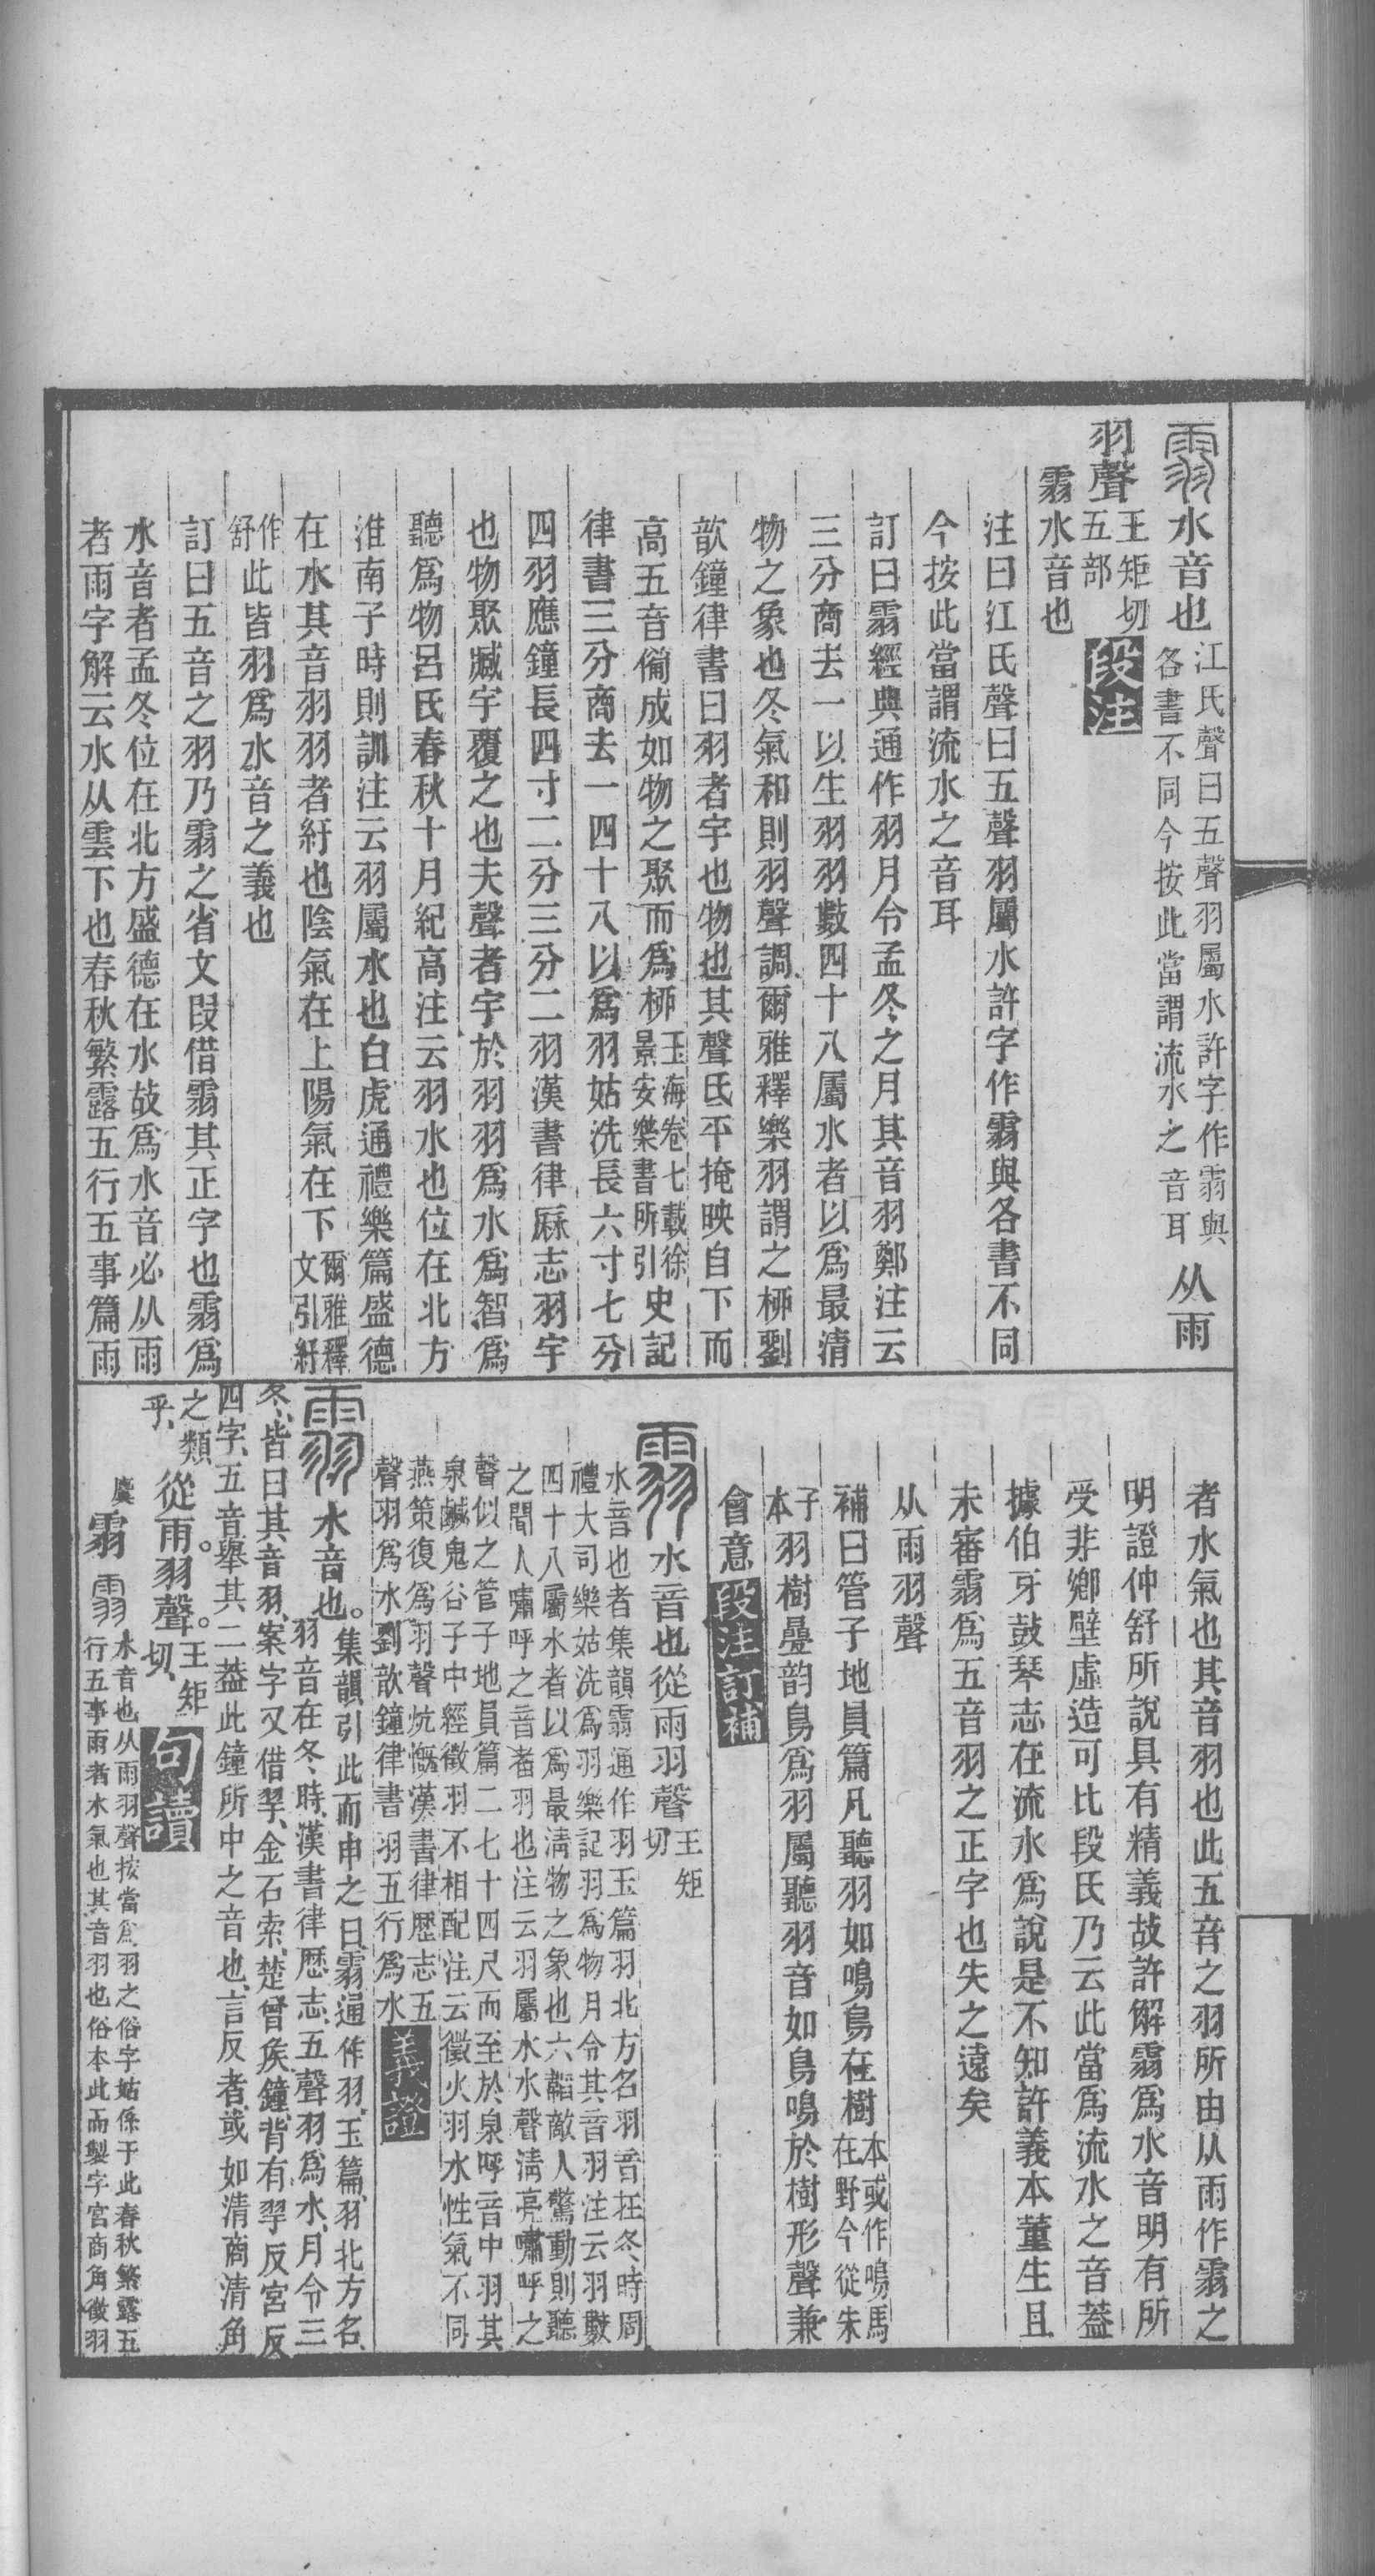 䨞水音也江氏聲曰五聲羽屬水許字作䨞與各書不同今按此當謂流水之音耳从雨
羽聲王矩切五部段注
䨞水音也
注曰江氏聲曰五聲羽屬水許字作䨞與各書不同
今按此當謂流水之音耳
訂曰䨞經典通作羽月令孟冬之月其音羽鄭注云
三分商去一以生羽羽數四十八屬水者以爲最清
物之象也冬氣和則羽聲調爾雅釋樂羽謂之桺劉
歆鐘律書曰羽者宇也物也其聲氐平掩映自下而
高五音僃成如物之聚而爲桺玉海卷七載徐景安樂書所引史記
律書三分商去一四十八以爲羽姑洗長六寸七分
四羽應鐘長四寸二分三分二羽漢書律厤志羽宇
也物聚臧宇覆之也夫聲者宇於羽羽爲水爲智爲
聽爲物呂氏春秋十月紀高注云羽水也位在北方
淮南子時則訓注云羽屬水也白虎通禮樂篇盛德
在水其音羽羽者紆也陰氣在上陽氣在下爾雅釋文引紆
作舒此皆羽爲水音之義也
訂曰五音之羽乃䨞之省文叚借䨞其正字也䨞爲
水音者孟冬位在北方盛德在水故爲水音必从雨
者雨字解云水从雲下也春秋繁露五行五事篇雨
者水氣也其音羽也此五音之羽所由从雨作䨞之
明證仲舒所說具有精義故許解䨞爲水音明有所
受非鄉壁虛造可比段氏乃云此當爲流水之音葢
據伯牙鼓琴志在流水爲說是不知許義本董生且
未審䨞爲五音羽之正字也失之遠矣
从雨羽聲
補曰管子地員篇凡聽羽如鳴鳥在樹本或作鳴馬在野今從朱
子本羽樹疊韵鳥爲羽屬聽羽音如鳥鳴於樹形聲兼
會意段注訂補
䨞水音也從雨羽聲王矩切
水音也者集韻䨞通作羽玉篇羽北方名羽音在冬時周
禮大司樂姑洗爲羽樂記羽爲物月令其音羽注云羽數
四十八屬水者以爲最淸物之象也六韜敵人驚動則聽
之聞人嘯呼之音者羽也注云羽屬水水聲淸亮嘯呼之
聲似之管子地員篇二七十四尺而至於泉呼音中羽其
泉鹹鬼谷子中經徵羽不相配注云徵火羽水性氣不同
燕策復爲羽聲忼慨漢書律歷志五
聲羽爲水劉歆鐘律書羽五行爲水義證
䨞水音也。集韻引此而申之曰䨞通作羽、玉篇、羽北方名、
羽音在冬時、漢書律歷志、五聲羽爲水、月令三
冬、皆曰其音羽、案字又借䍿、金石索、楚曾矦鐘、背有䍿反宮反
四字、五音舉其二葢此鐘所中之音也、言反者、或如清商清角
之類乎、從雨。羽聲。王矩切、句讀
䨞 䨞水音也从雨羽聲按當爲羽之俗字姑係于此春秋繁露五
行五事雨者水氣也其音羽也俗本此而製字宮商角徵羽